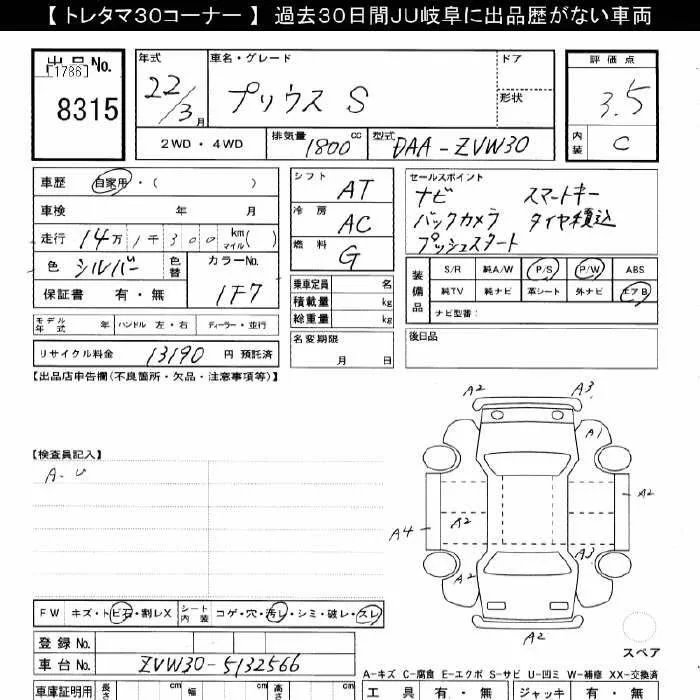 【 トレタマ30コーナー 】 過去30日間JU岐阜に出品歴がない車両
出品No.
[1786]
8315
年式 22/3月
車名・グレード プリウス S
ドア
形状
2WD・4WD 排気量 1800cc 型式 DAA-ZVW30
評価点
3.5
内装 C
車歴 自家用・( )
車検 年 月
走行 14万1千300 km マイル( )
色 シルバー 色替 カラーNo. 1F7
保証書 有・無
モデル年式 年 ハンドル 左・右 ディーラー・並行
リサイクル料金 13190 円 預託済
シフト AT
冷房 AC
燃料 G
乗車定員 名
積載量 kg
総重量 kg
名変期限
月 日
セールスポイント
ナビ スマートキー
バックカメラ タイヤ積込
プッシュスタート
装備品 S/R 純A/W P/S P/W ABS
純TV 純ナビ 革シート 外ナビ エアB
ナビ型番:
後日品
【出品店申告欄(不良箇所・欠品・注意事項等)】
【検査員記入】
A-U
A2 A3
A1
A2
A4 A2
A3
A2
A2
スペア
FW キズ・トビ石・割レX シート内装 コゲ・穴・汚レ・シミ・破レ・スレ
登録No.
車台No. ZVW30-5132566
車庫証明用 長さ cm 幅 cm 高さ cm
A-キズ C-腐食 E-エクボ S-サビ U-凹ミ W-補修 XX-交換済
工具 有・無 ジャッキ 有・無